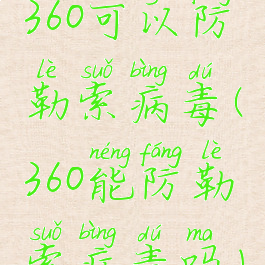 360可以防
lè suǒ bìng dú
勒索病毒(
néng fáng lè
360能防勒
suǒ bìng dú ma
索病毒吗)